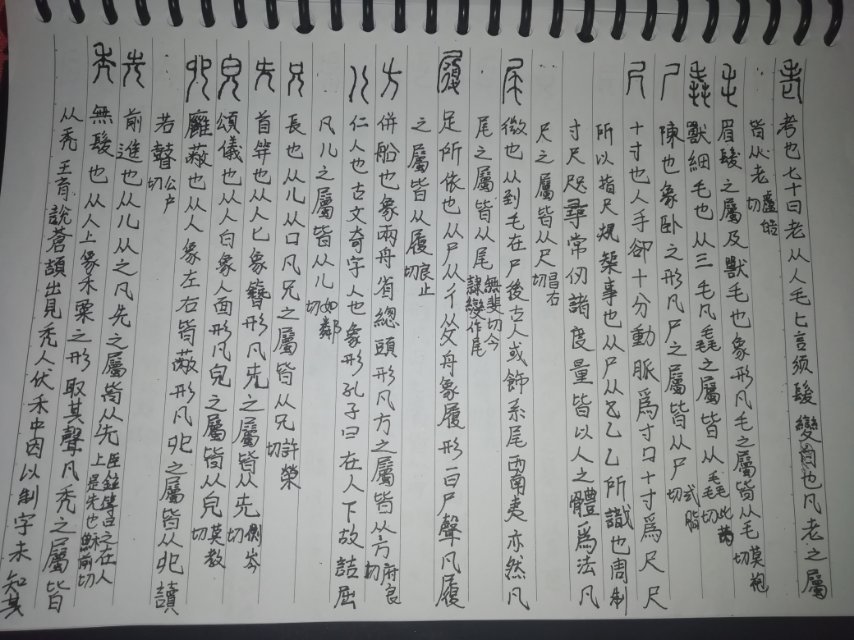 老 考也七十曰老从人毛匕言須髮變白也凡老之屬
皆从老盧皓切
毛 眉髮之屬及獸毛也象形凡毛之屬皆从毛莫袍切
毳 獸細毛也从三毛凡毳之屬皆从毳此芮切
尸 陳也象卧之形凡尸之屬皆从尸式脂切
尺 十寸也人手卻十分動脈爲寸口十寸爲尺尺
所以指尺規榘事也从尸从乙乙所識也周制
寸尺咫尋常仞諸度量皆以人之體爲法凡
尺之屬皆从尺昌石切
尾 微也从到毛在尸後古人或飾系尾西南夷亦然凡
尾之屬皆从尾無斐切今隸變作尾
履 足所依也从尸从彳从夊舟象履形一曰尸聲凡履
之屬皆从履良止切
方 併船也象兩舟省總頭形凡方之屬皆从方府良切
儿 仁人也古文奇字人也象形孔子曰在人下故詰屈
凡儿之屬皆从儿如鄰切
兄 長也从儿从口凡兄之屬皆从兄許榮切
兂 首笄也从人匕象簪形凡兂之屬皆从兂側岑切
皃 頌儀也从人白象人面形凡皃之屬皆从皃莫教切
𠑹 廱蔽也从人象左右皆蔽形凡𠑹之屬皆从𠑹讀
若瞽公户切
先 前進也从儿从之凡先之屬皆从先臣鉉等曰之在人上是先也穌前切
禿 無髮也从人上象禾粟之形取其聲凡禿之屬皆
从禿王育說蒼頡出見禿人伏禾中因以制字未知其